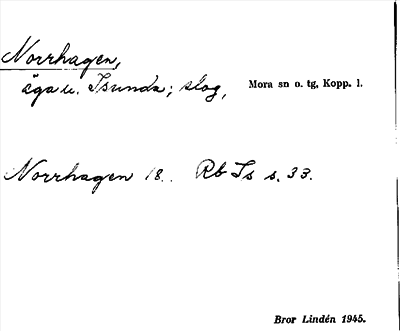 Norrhagen,
äga u. Isunda; skog, Mora sn o. tg, Kopp. l.
Norrhagen 18.. Rb Is s. 33.
Bror Lindén 1945.